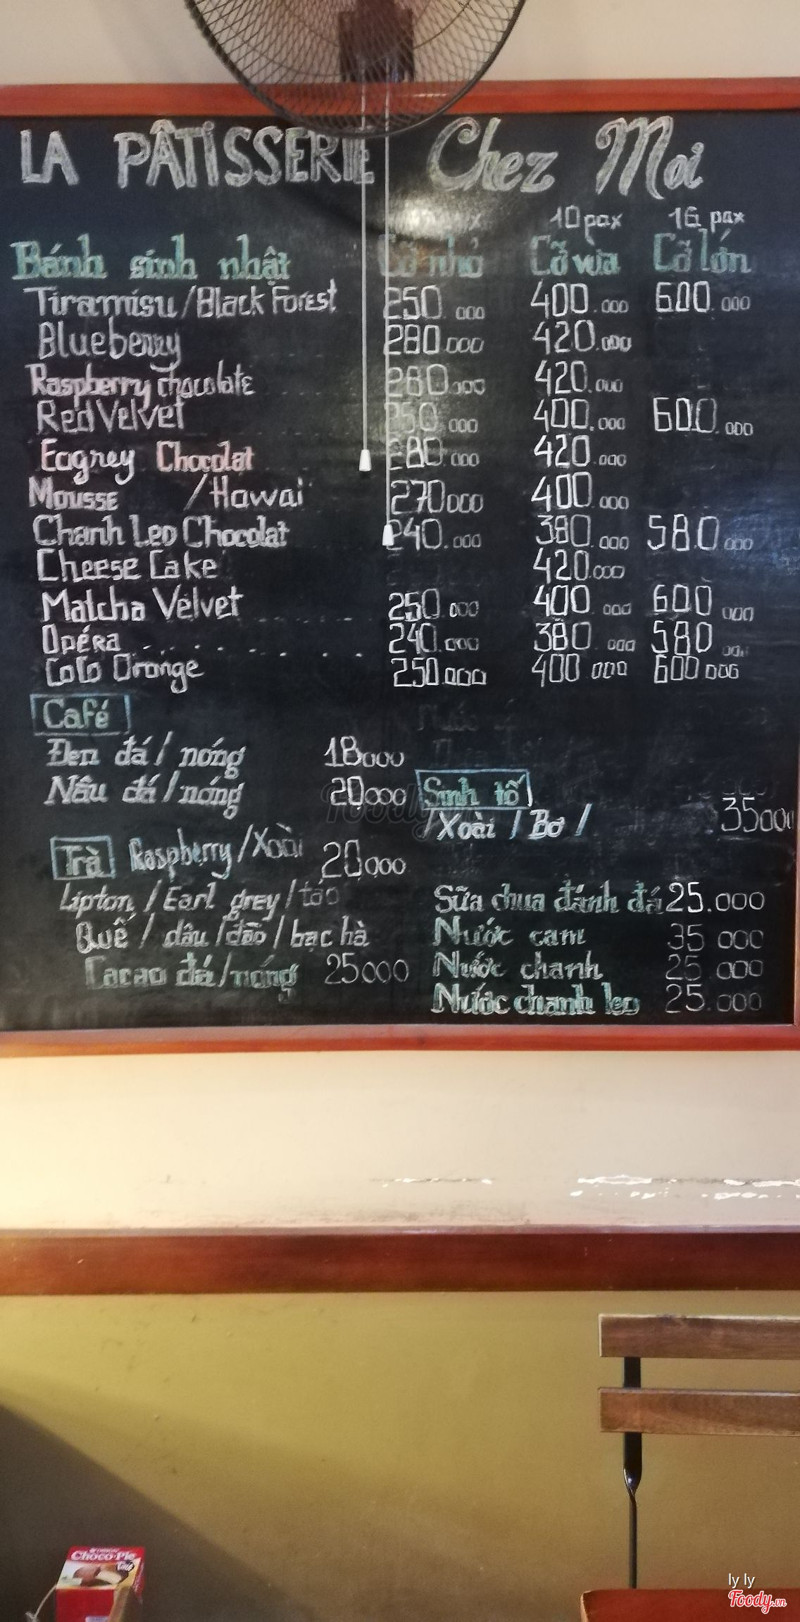 LA PÂTISSERIE Chez Moi
10 pax 16 pax
Bánh sinh nhật Cỡ nhỏ Cỡ vừa Cỡ lớn
Tiramisu/Black Forest 250.000 400.000 600.000
Blueberry 280.000 420.000
Raspberry chocolate 280.000 420.000
Red Velvet 250.000 400.000 600.000
Eagrey Chocolat 280.000 420.000
Mousse /Hawai 270000 400.000
Chanh Leo Chocolat 240.000 380.000 580.000
Cheese Cake 420.000
Matcha Velvet 250.000 400.000 600.000
Opéra 240.000 380.000 580.000
CoCo Orange 250.000 400 000 600 000
Café
Đen đá/nóng 18000
Nâu đá/nóng 20000
Sinh tố
/Xoài / Bơ / 35000
Trà Raspberry/Xoài 20000
Lipton / Earl grey / táo
Quế / dâu / đào / bạc hà
Cacao đá/nóng 25000
Sữa chua đánh đá 25.000
Nước cam 35 000
Nước chanh 25.000
Nước chanh leo 25.000
Choco-Pie
ly ly
Foody.vn